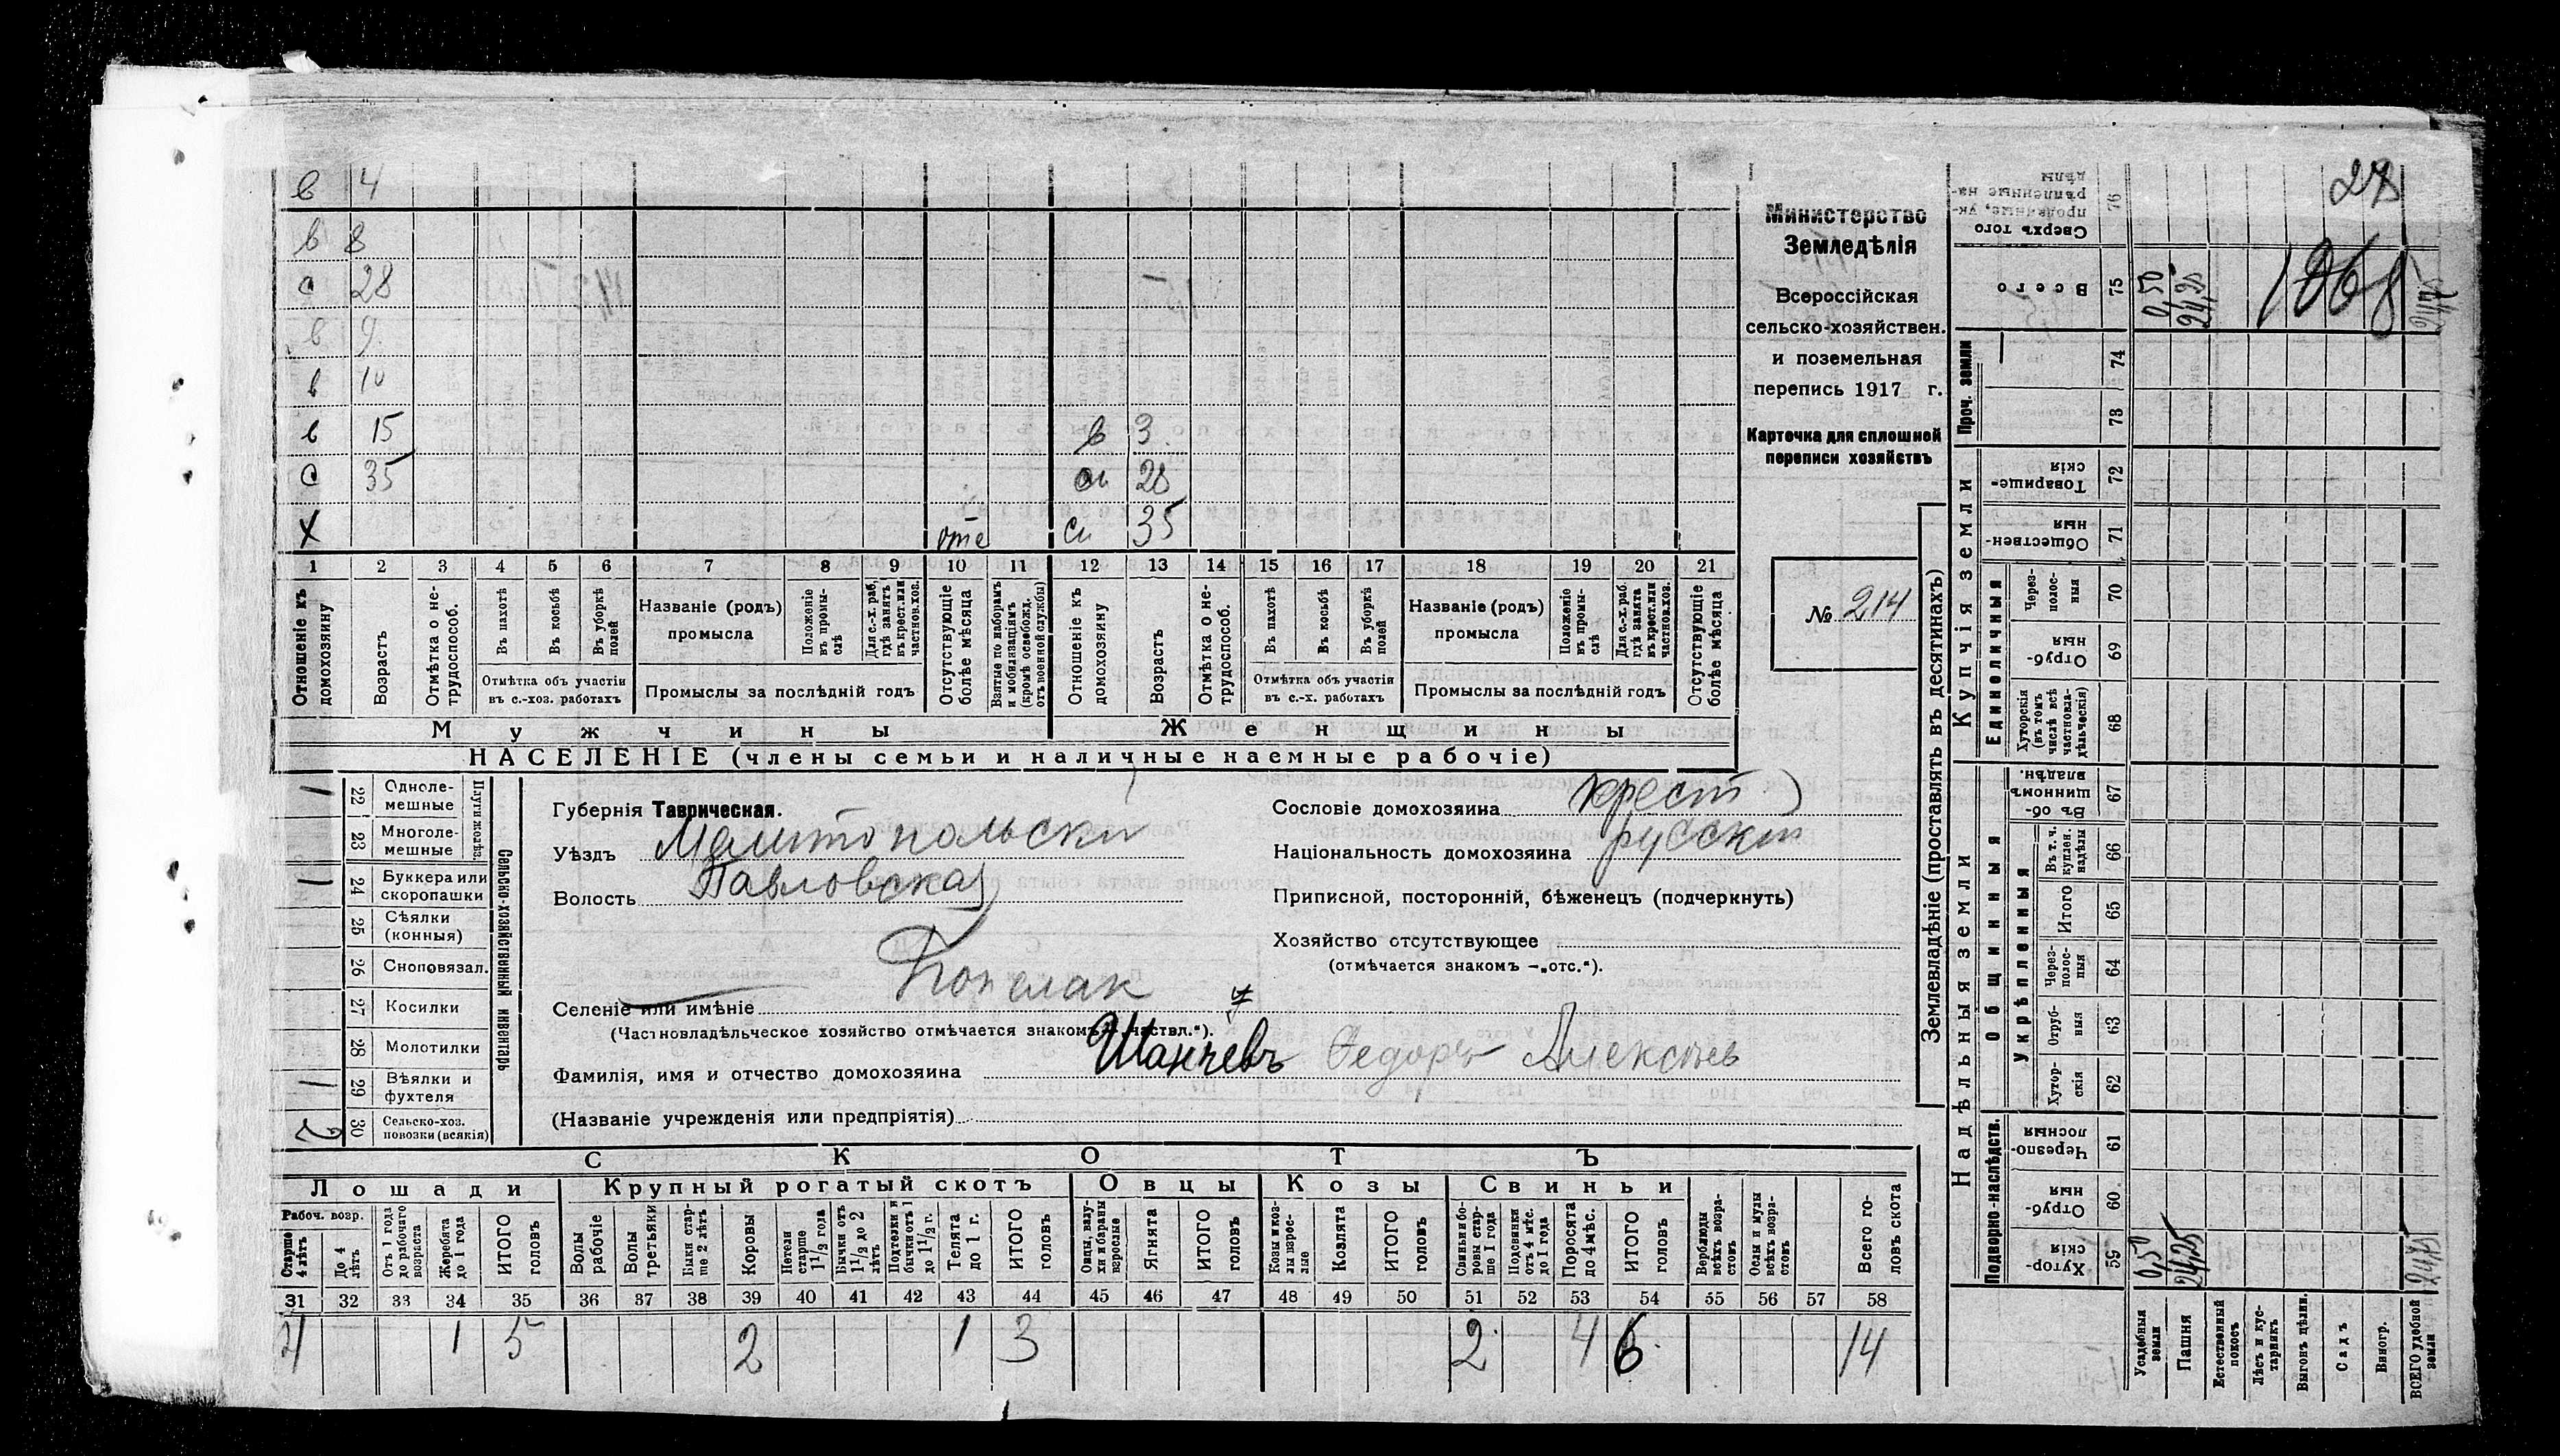 в 4
в 8
с 28
в 9
в 10
в 15 в 3
с 35 сн 28
Х отс сн 35
1 2 3 4 5 6 7 8 9 10 11 12 13 14 15 16 17 18 19 20 21
Отношеніе къ домохозяину
Возрастъ
Отмѣтка о нетрудоспособ.
Въ пахотѣ
Въ косьбѣ
Въ уборкѣ полей
Отмѣтка объ участіи въ с.-хоз. работахъ
Названіе (родъ) промысла
Положеніе въ промыслѣ
Для с.-х. раб, гдѣ занятъ въ крест. или частнов. хоз.
Промыслы за послѣдній годъ
Отсутствующіе болѣе мѣсяца
Взятые по наборамъ и мобилизаціямъ (кромѣ освобожд. отъ военной службы)
Отношеніе къ домохозяину
Возрастъ
Отмѣтка о нетрудоспособ.
Въ пахотѣ
Въ косьбѣ
Въ уборкѣ полей
Отмѣтка объ участіи въ с.-х. работахъ
Названіе (родъ) промысла
Положеніе въ промыслѣ
Для с.-х. раб. гдѣ занята въ крест. или частнов. хоз.
Промыслы за послѣдній годъ
Отсутствующіе болѣе мѣсяца
Мужчины Женщины
НАСЕЛЕНІЕ (члены семьи и наличные наемные рабочіе)
Министерство
Земледѣлія
Всероссійская
сельско-хозяйствен.
и поземельная
перепись 1917 г.
Карточка для сплошной
переписи хозяйствъ
№ 214
Сельско-хозяйственный инвентарь
1 22 Однолемешные
23 Многолемешные
1 24 Буккера или скоропашки
25 Сѣялки (конныя)
26 Сноповязал.
27 Косилки
28 Молотилки
1 29 Вѣялки и фухтеля
2 30 Сельско-хоз. повозки (всякія)
Губернія Таврическая.
Уѣздъ Мелитопольскій
Волость Павловская
Селеніе или имѣніе
(Частновладѣльческое хозяйство отмѣчается знакомъ „частвл.“).
Фамилія, имя и отчество домохозяина Федоръ Алексѣев
(Названіе учрежденія или предпріятія)
Сословіе домохозяина крест
Національность домохозяина русскій
Приписной, посторонній, бѣженецъ (подчеркнуть)
Хозяйство отсутствующее
(отмѣчается знакомъ —„отс.“).
СКОТЪ
Лошади Крупный рогатый скотъ Овцы Козы Свиньи
Рабоч. возр.
Старше 4 лѣтъ
До 4 лѣтъ
Отъ 1 года до рабочаго возраста
Жеребята до 1 года
ИТОГО головъ
Волы рабочіе
Волы третьяки
Быки старше 2 лѣтъ
Коровы
Нетели старше 1 1/2 года
Бычки отъ 1 1/2 до 2 лѣтъ
Подтелки и бычки отъ 1 до 1 1/2 г.
Телята до 1 г.
ИТОГО головъ
Овцы, валухи и бараны взрослые
Ягнята
ИТОГО головъ
Козы и козлы взрослые
Козлята
ИТОГО головъ
Свиньи и боровы старше 1 года
Подсвинки отъ 4 мѣс. до 1 года
Поросята до 4 мѣс.
ИТОГО головъ
Верблюды всѣхъ возрастовъ
Ослы и мулы всѣхъ возрастовъ
Всего головъ скота
31 32 33 34 35 36 37 38 39 40 41 42 43 44 45 46 47 48 49 50 51 52 53 54 55 56 57 58
4 1 5 2 1 3 2 4 6 14
Землевладѣніе (проставлять въ десятинахъ)
Купчія земли
Надѣльныя земли
Единоличныя
Общинныя
Укрѣпленныя
Подворно-наслѣдств.
Проч. земли
Сверхъ того проданные, укрѣпленные надѣлы 76 28
Всего 75 0,50 24,25 1068 24,75
74
73
Товарищескія 72
Общественныя 71
Черезполосныя 70
Отрубныя 69
Хуторскія (въ томъ числѣ всѣ частновладѣльческія) 68
Въ общинномъ владѣн. 67
Въ т. ч. куплен. надѣлы 66
Итого 65
Черезполосныя 64
Отрубныя 63
Хуторскія 62
Черезполосныя 61
Отрубныя 60
Хуторскія 59 0,50 24,25 24,75
Усадебныя земли
Пашня
Естественный покосъ
Лѣсъ и кустарникъ
Выгонъ цѣлин.
Садъ
Виногр.
ВСЕГО удобной земли